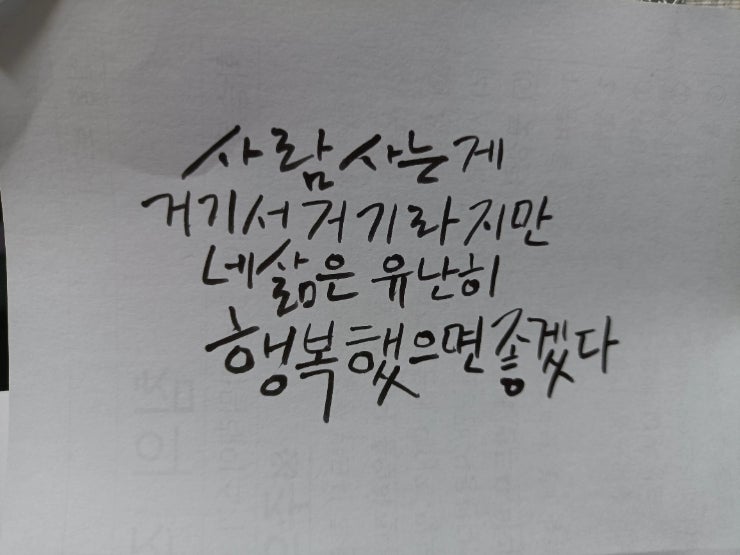 사람 사는게
거기서 거기라지만
네 삶은 유난히
행복했으면 좋겠다